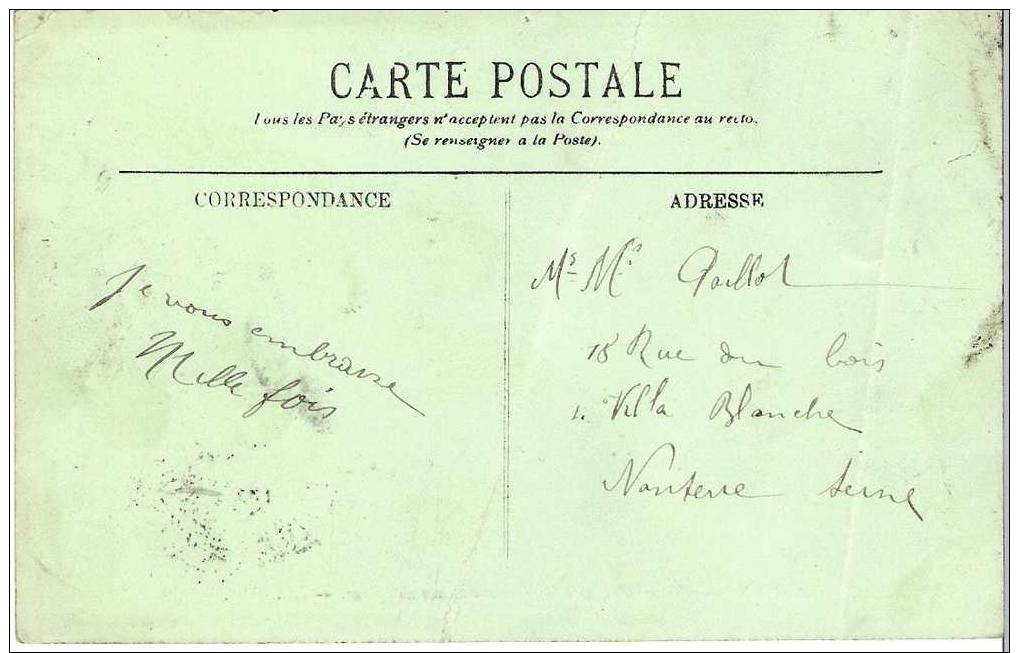 CARTE POSTALE
Tous les Pays étrangers n'acceptent pas la Correspondance au recto.
(Se renseigner a la Poste).
CORRESPONDANCE
ADRESSE
Je vous embrasse
Mille fois
Ms Ms
18 Rue du bois
1. Villa Blanche
Nanterre Seine